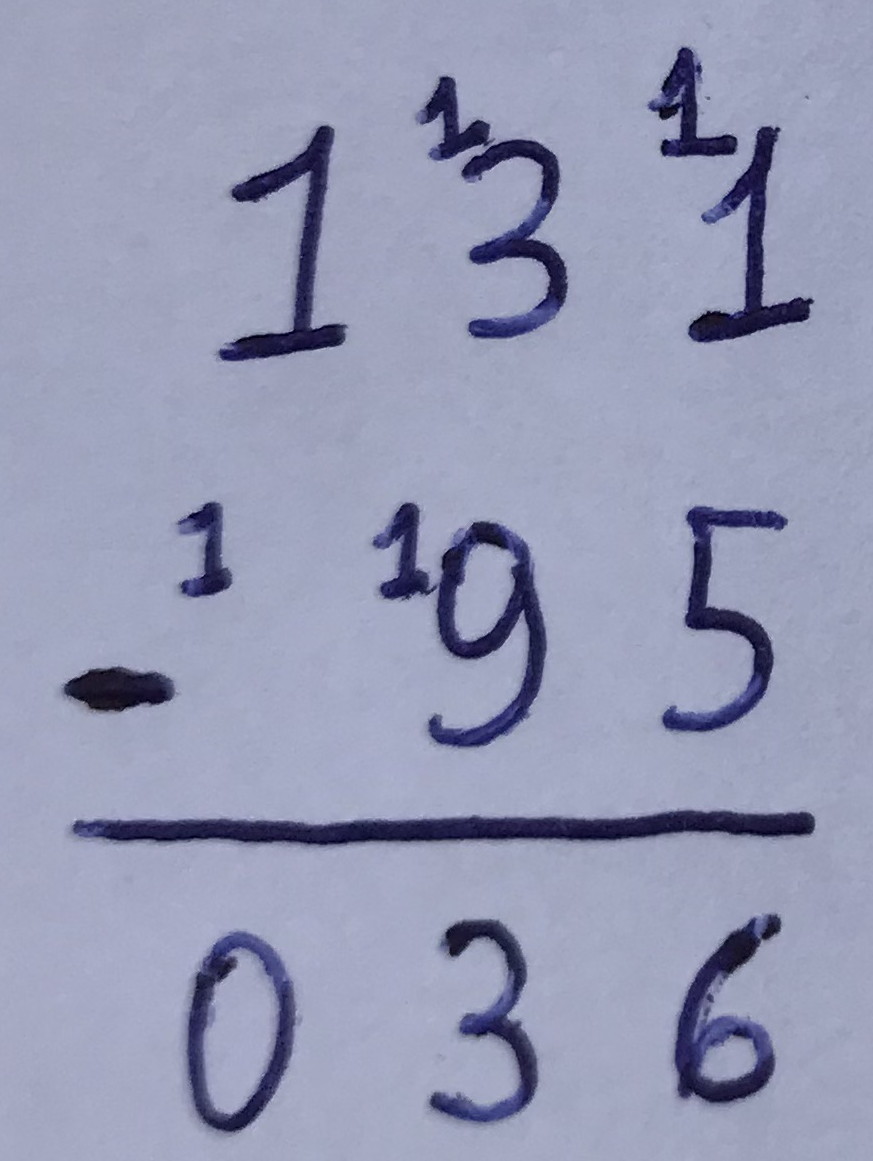 1 ¹3 ¹1
- ¹ ¹9 5
0 3 6